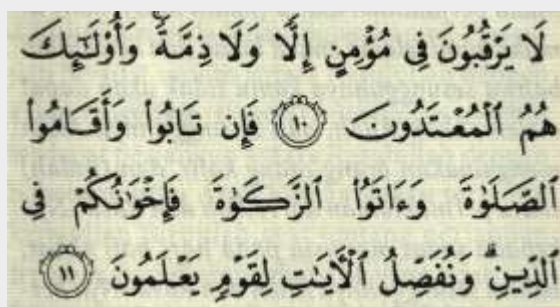 لَا يَرْقُبُونَ فِى مُؤْمِنٍ إِلًّا وَلَا ذِمَّةً ۚ وَأُو۟لَـٰٓئِكَ
هُمُ ٱلْمُعْتَدُونَ ١٠ فَإِن تَابُوا۟ وَأَقَامُوا۟
ٱلصَّلَوٰةَ وَءَاتَوُا۟ ٱلزَّكَوٰةَ فَإِخْوَٰنُكُمْ فِى
ٱلدِّينِ ۗ وَنُفَصِّلُ ٱلْـَٔايَـٰتِ لِقَوْمٍ يَعْلَمُونَ ١١